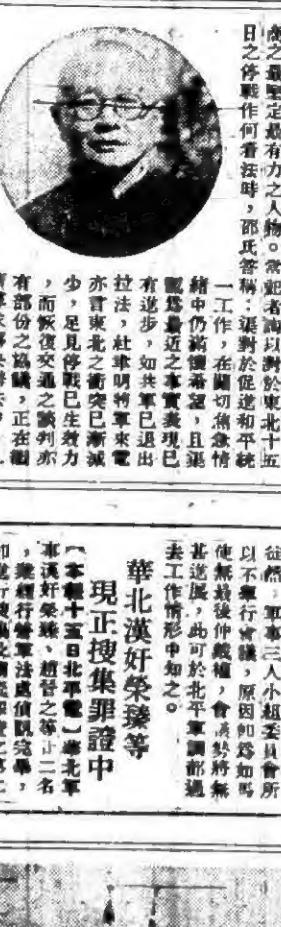 商之最堅定最有力之人物。當記者詢以對於東北十五
日之停戰作何看法時，邵氏答稱：渠對於促進和平統
一工作，在關切焦急情
緒中仍滿懷希望，且渠
認爲最近之事實表現已
有進步，如共軍已退出
拉法，杜聿明將軍來電
亦言東北之衝突已漸減
少，足見停戰已生效力
，而恢復交通之談判亦
有部份之協議，正在
徒然，軍事三人小組委員會所
以不舉行會議，原因卽爲如馬
使無最後仲裁權，會議勢將無
甚進展，此可於北平軍調部過
去工作情形中知之。
華北漢奸榮臻等
現正搜集罪證中
【本報十五日北平電】華北軍
事漢奸榮臻、趙晉之等廿二名
，業經行營軍法處偵訊完畢，